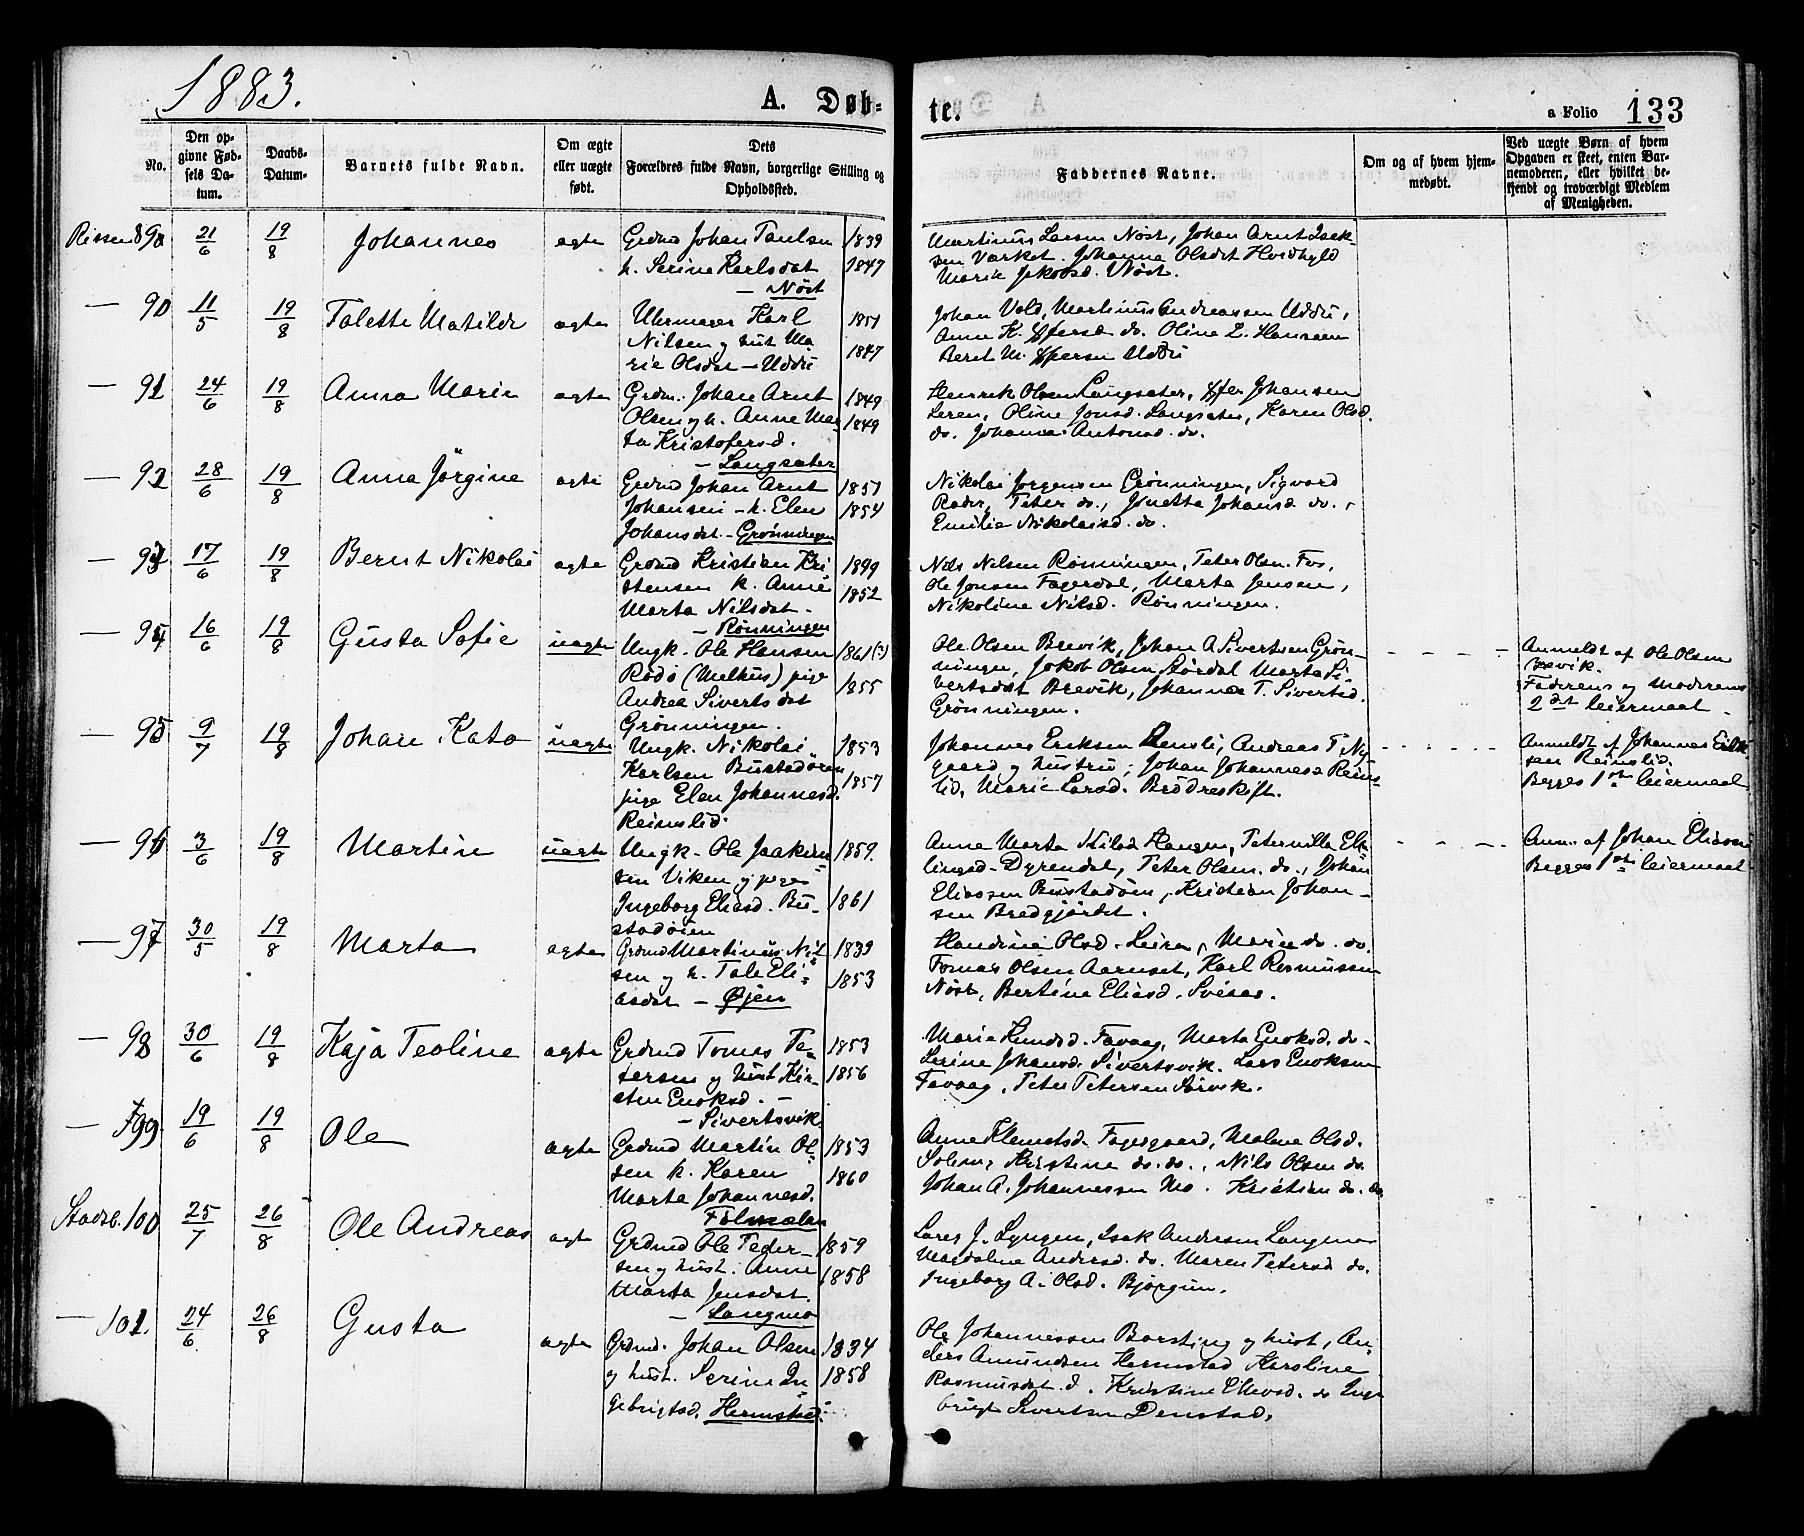 1883.
A. Døb-
te.
a Folio 133
No.
Den op-
givne Fød-
sels Da-
tum.
Daabs-
Datum.
Barnets fulde Navn.
Om ægte
eller uægte
født.
Dets
Forældres fulde Navn, borgerlige Stilling og
Opholdssted.
Faddernes Navne.
Om og af hvem hjem-
medøbt.
Ved uægte Børn af hvem
Opgaven er skeet, enten Bar-
nemoderen, eller hvilket be-
kjendt og troværdigt Medlem
af Menigheden.
Rissen 21/6 19/8 Johannes ægte
Grdmd Johan Paulsen 1839
h. Serine Karlsdat 1847
- Nöst
Martinus Larsen Nöst, Johan Arnt Isak-
sen Værket. Johanna Olsdat Hvidhyld
Marik Jakobsd. Nöst.
— 90 11/5 19/8 Talette Matilde ægte
Uhrmager Karl 1851
Nilsen og hust Ma 1847
rie Olsdat - Uddu
Johan Vold, Martinus Andreassen Uddu,
Anne K. do. Oline L. Hansen
Beret M. Uddu
— 91 24/6 19/8 Anna Marie ægte
Grdm. Johan Arnt 1849
Olsen og h. Anne Mar- 1849
ta Kristofersd.
- Langsæter
Henrik Olsen Langsæter, Johansen
Leren, Oline Jonsd. Langsæter, Karen Olsd.
do. Johanna Antonsd. do.
— 92 28/6 19/8 Anna Jörgine ægte
Grdmd Johan Arnt 1851
Johansen - h. Elen 1854
Johansdat. - Grønningen
Nikolai Jørgensen Grønningen, Sigvard
Peter do., Jonetta Johansd do.,
Emilie Nikolaisd. do.
— 93 17/6 19/8 Bernt Nikolai ægte
Grdmd Kristian Kri
stensen h. Anne 1852
Marta Nilsdat.
- Rønningen
Nils Nilsen Rønningen, Peter Olsen Fos,
Ole Jonsen Fagerdal, Marta Jensen,
Nikoline Nilsd. Rønningen.
— 94 16/6 19/8 Gusta Sofie uægte
Ungk. Ole Hansen 1861(?)
Rödö (Melhus) pige 1855
Andrea Sivertsdat
Grønningen.
Ole Olsen Brevik, Johan A Sivertsen Grøn-
ningen, Jakob Olsen Størdal Marta Si-
vertsdat Brevik, Johanna T. Sivertsd.
Grønningen.
Anmeldt af Ole Olsen
Brevik.
Faderens og Moderens
2det leiermaal.
— 95 9/7 19/8 Johan Kato uægte
Ungk. Nikolai 1853
Karlsen Bustadören 1857
pige Elen Johannesd.
Reinslid.
Johannes Eriksen Rensli, Andreas T. Ny
gaard og hustru; Johan Johannesen Reins-
lid, Marie Larsd. Brödreskift.
Anmeldt af Johannes Erik
sen Reinslid.
Begges 1ste leiermaal
— 96 3/6 19/8 Martin uægte
Ungk. Ole Joakim 1859.
sen Viken og pige
Ingeborg Eliasd. Bu- 1861
stadöien
Anne Marta Haugen, Peternille El-
lingsd. Dyrendal, Peter Olsen. do., Johan
Eliassen Bustadöen, Kristian Johan-
sen Bredgjördet.
Anm. af Johan Eliasen
Begges 1ste leiermaal
— 97 30/5 19/8 Marta ægte
Grdmd Martinus Nil 1839
sen og h. Tale Eli- 1853
asdat - Øjen
Olsd. Leira, Marie do. do.
Tomas Olsen Aarnset, Karl Rasmussen
Nöst, Bertine Eliasd.
— 98 30/6 19/8 Kaja Teoline ægte
Grdmd Tomas Pe- 1853
tersen og hust Kir- 1856
sten Enoksd. -
- Sivertsvik
Marie Knudsd. Favaag, Marta Enoksd. do.
Serine Johansd. Sivertsvik. Lars Enoksen
Favaag, Peter Petersen Sørvik.
— 99 19/6 19/8 Ole ægte
Grdmd Martin Ol 1853
sen h. Karen 1860
Marta Johannesd.
Anne Klemetsd. Fagergaard, Malene Olsd.
Solem, Kristine do. do., Nils Olsen do.
Johan A. Johannessen Mo. Kristian do. do
Stadsb. 100 25/7 26/8 Ole Andreas ægt
Grdmd Ole Peder- 1859
sen og hust. Anne 1858
Marta Jensdat.
- Langmo
Lars J. Lyngen, Isak Andersen Langmo
Magdalene Andersd. do. Maren Petersd do.
Ingeborg A. Olsd. Bjørgum.
— 101. 24/6 26/8 Gusta ægte
Grdmd. Johan Olsen 1834
og hust. Serine In 1858
gebrigtsd. Hermstad.
Ole Johannessen Barsting og hust, An-
ders Amundsen Hermstad Karoline
Rasmusdat d. Kristine do Inge
brigt Sivertsen Denstad.